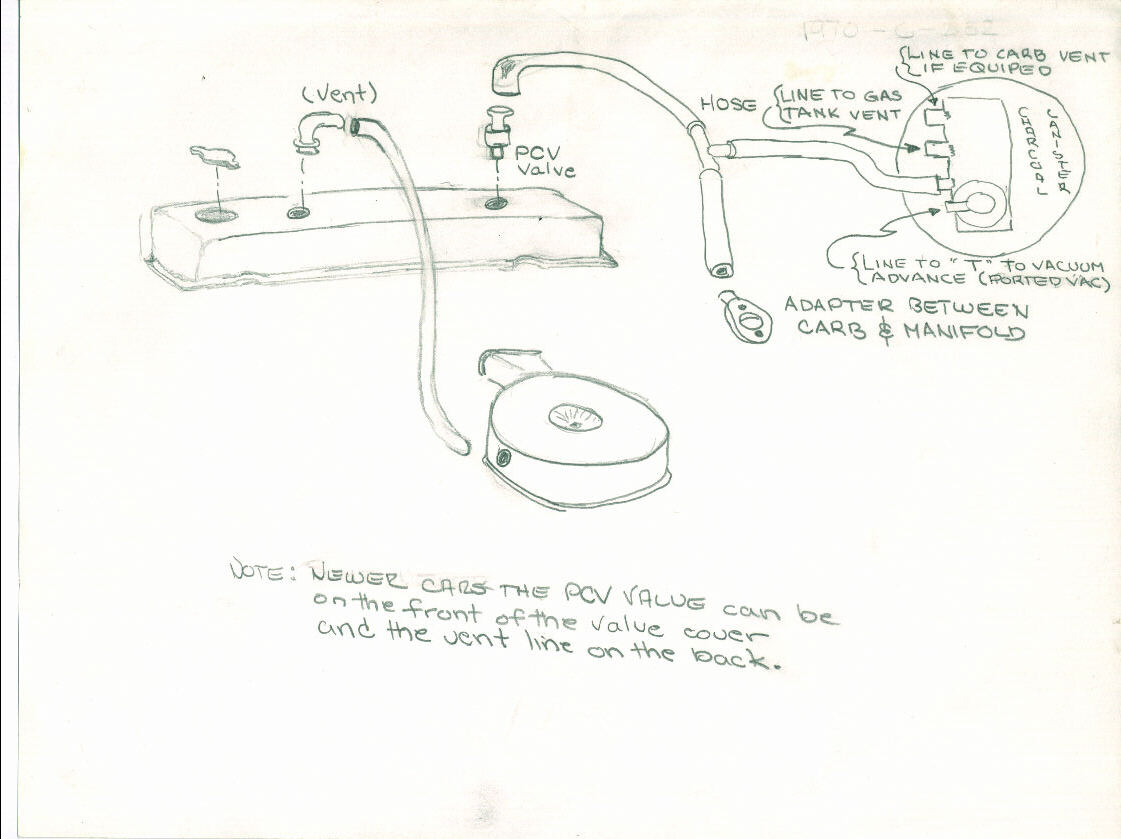 LINE TO CARB VENT
IF EQUIPED
(Vent)
HOSE
LINE TO GAS
TANK VENT
CHARCOAL
CANISTER
PCV
Valve
LINE TO "T" TO VACUUM
ADVANCE (PORTED VAC)
ADAPTER BETWEEN
CARB & MANIFOLD
NOTE: NEWER CARS THE PCV VALUE can be
on the front of the value cover
and the vent line on the back.